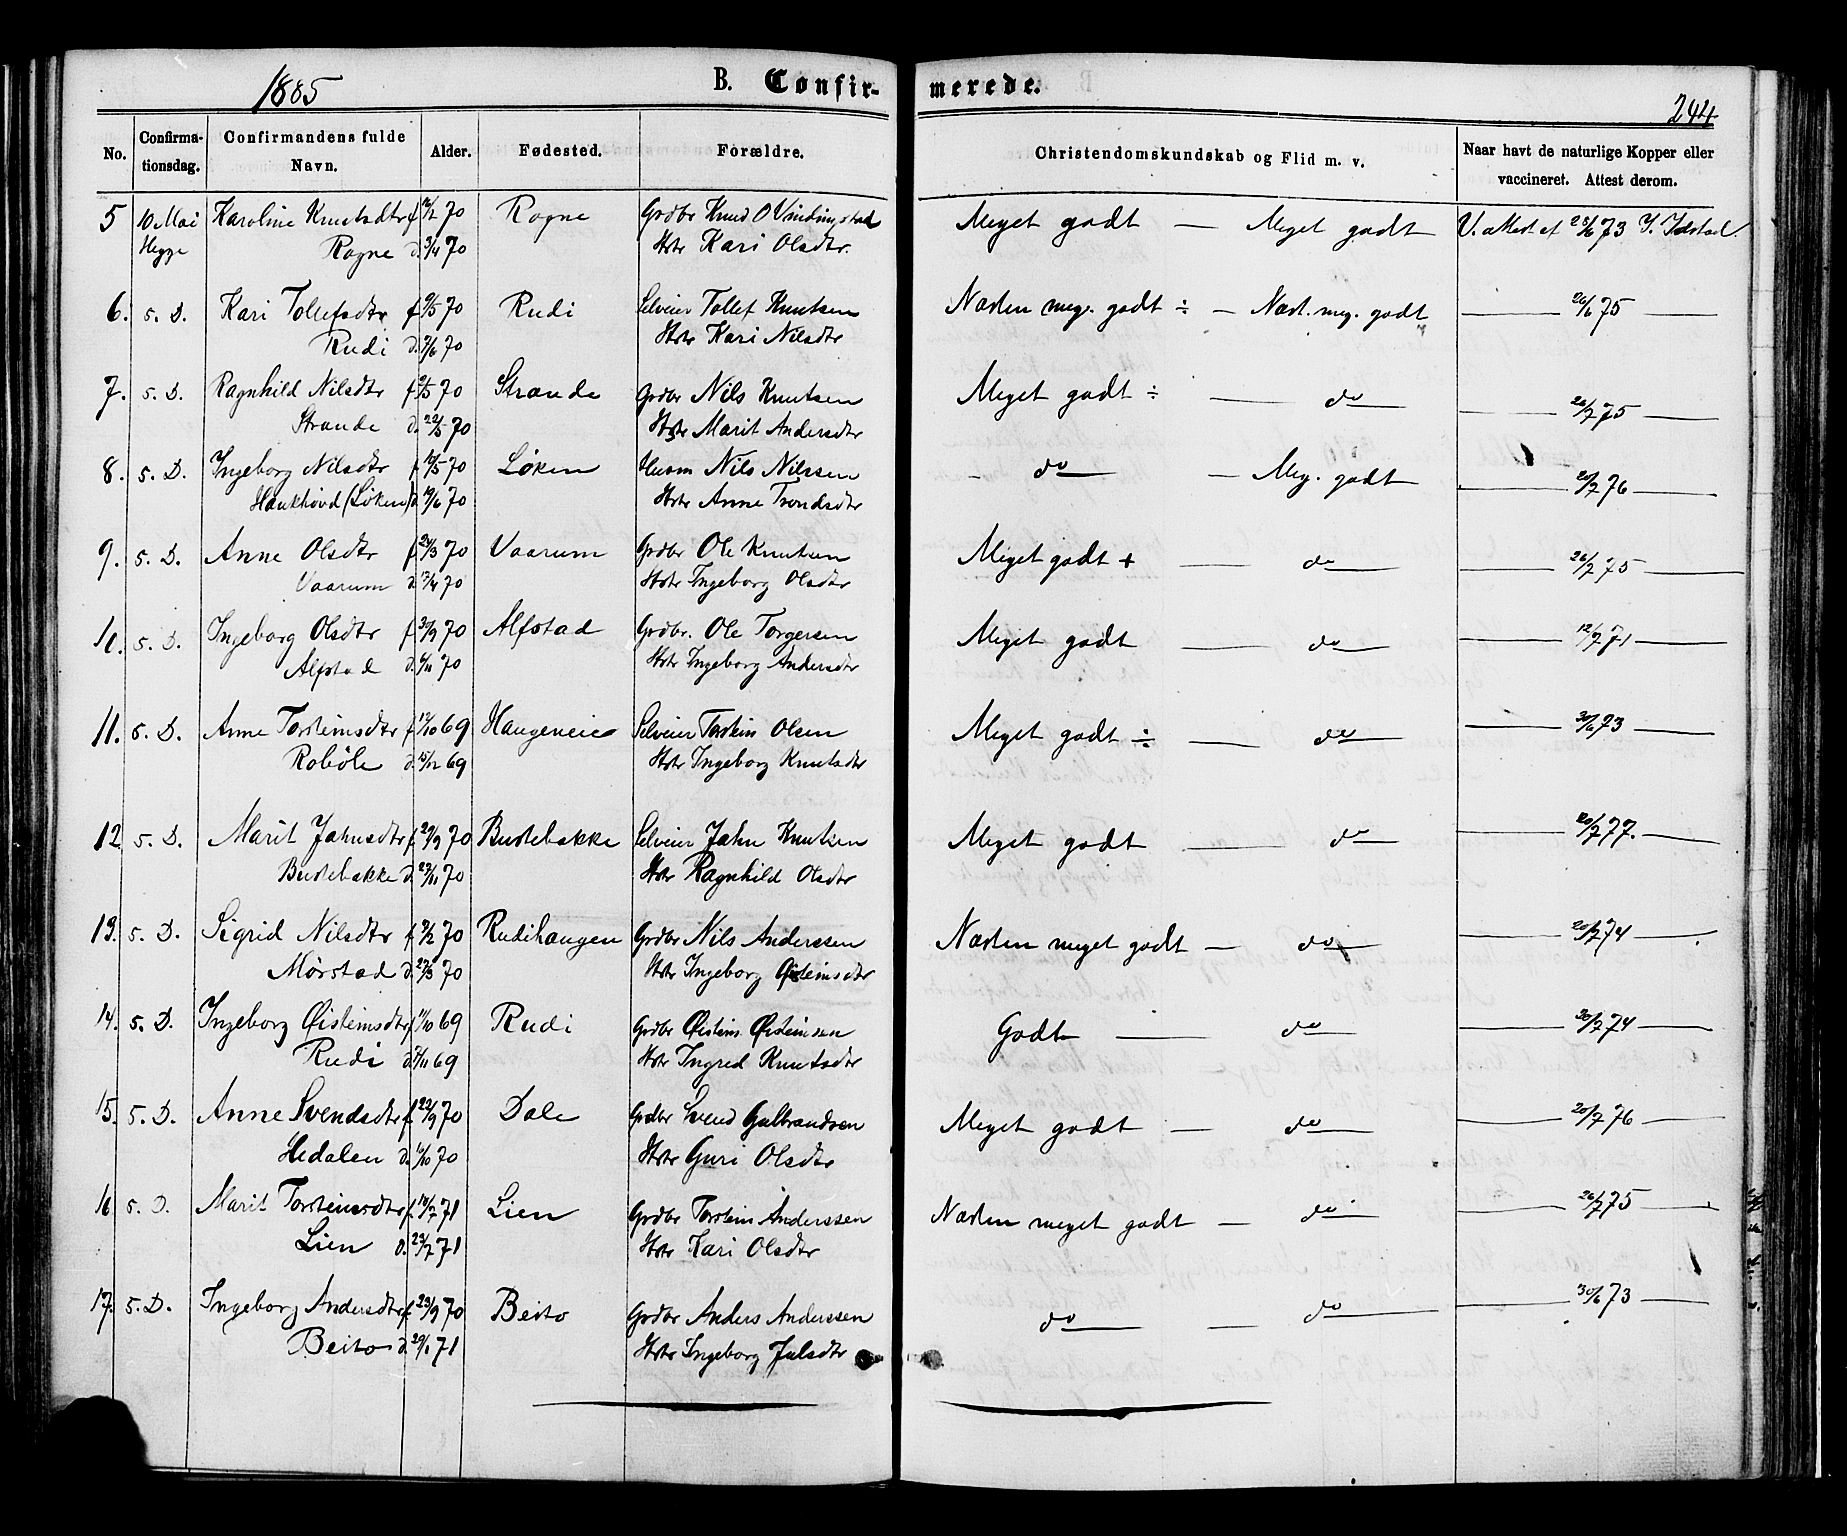 1885
B. Confir-
merede.
244
No.
Confirma-
tionsdag.
Confirmandens fulde
Navn.
Alder.
Fødested.
Forældre.
Christendomskundskab og Flid m. v.
Naar havt de naturlige Kopper eller
vaccineret. Attest derom.
5 10 Mai Karoline Knutsdtr f 70 Rogne Grdbr Knud O Vindingstad Meget godt — Meget godt V. Attest af 73
Hegge Rogne d. 3/4 70 Hstr Kari Olsdtr.
6. s. D. Kari Tollefsdtr f 9/5 70 Rudi Selveier Tollef Knutsen Næsten meg. godt ÷ — Næst. meg. godt — 26/6 75 —
Rudi d. 7/6 70 Hstr Kari Nilsdtr
7. s. D. Ragnhild Nilsdtr f 70 Strande Grdbr Nils Knutsen Meget godt ÷ — do — 26/7 75 —
Strande d. 22/5 70 Hstr Marit Andersdtr
8. s. D. Ingeborg Nilsdtr f 70 Løken Husm Nils Nilssen - do — Meg. godt — 20/7 76 —
Haukhovd (Løken) d 19/6 70 Hstr Anne Trondsdtr
9. s. D. Anne Olsdtr f 24/3 70 Vaarum Grdbr Ole Knutsen Meget godt + — do — 26/7 75 —
Vaarum d 17/4 70 Hstr Ingeborg Olsdtr
10. s. D. Ingeborg Olsdtr f 30/9 70 Alfstad Grdbr. Ole Torgersen Meget godt — do — 12/7 71 —
Alfstad d. 6/11 70 Hstr Ingeborg Andersdtr
11. s. D. Anne Torsteinsdtr f 69 Haugeneie Selveier Torstein Olsen Meget godt ÷ — do — 30/6 73 —
Robøle d. 69 Hstr Ingeborg Knutsdtr
12 s. D. Marit Jahnsdtr f 29/9 70 Bustebakke Selveier Jahn Knutsen Meget godt — do — 20/7 77. —
Bustebakke d. 70 Hstr Ragnhild Olsdtr
13. s. D. Sigrid Nilsdtr f 70 Rudihaugen Grdbr Nils Anderssen Næsten meget godt — do — 20/7 74 —
Mørstad d. 27/3 70 Hstr Ingeborg Øisteinsdtr
14. s. D. Ingeborg Øisteinsdtr f 11/10 69 Rudi Grdbr Øistein Øisteinsen Godt — do — 30/7 74 —
Rudi d 7/11 69 Hstr Ingrid Knutsdtr
15. s. D. Anne Svendsdtr f 22/9 70 Dale Grdbr Svend Gulbrandsen Meget godt — do — 20/7 76 —
Hedalen d. 70 Hstr Guri Olsdtr
16 s. D. Marit Torsteinsdtr f. 71 Lien Grdbr Torstein Anderssen Næsten meget godt — do — 26/7 75 —
Lien d. 71 Hstr Kari Olsdtr
17. s. D. Ingeborg Andersdtr f 23/9 70 Beito Grdbr Anders Anderssen do — do — 30/6 73 —
Beito d 29/1 71 Hstr Ingeborg Julsdtr